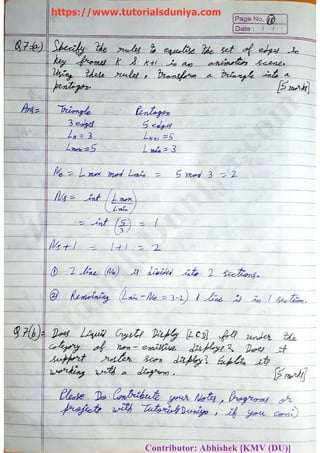 https://www.tutorialsduniya.com
Page No.
Date : / /
Q7(a) Specify the rules to equalise the set of edges in
key frames K & K+1 in an animation scene.
Using these rules, transform a triangle into a
pentagon. [5 marks]
Ans= Triangle Pentagon
3 edges 5 edges
Lk = 3 Lk+1 = 5
Lmax = 5 Lmin = 3
Ne = Lmax mod Lmin = 5 mod 3 = 2
Ns = int (Lmax / Lmin)
= int (5/3) = 1
Ns+1 = 1+1 = 2
① 2 line (Ne) is divided into 2 sections.
② Remaining (Lmin - Ne = 3-2) 1 line is in 1 section.
Q7(b)= Does Liquid Crystal Display [LCD] fall under the
category of non-emissive displays? Does it
support raster scan display? Explain its
working with a diagram. [5 marks]
Please Do Contribute your Notes, Programs or
projects with TutorialsDuniya, if you can:)
Contributor: Abhishek [KMV (DU)]